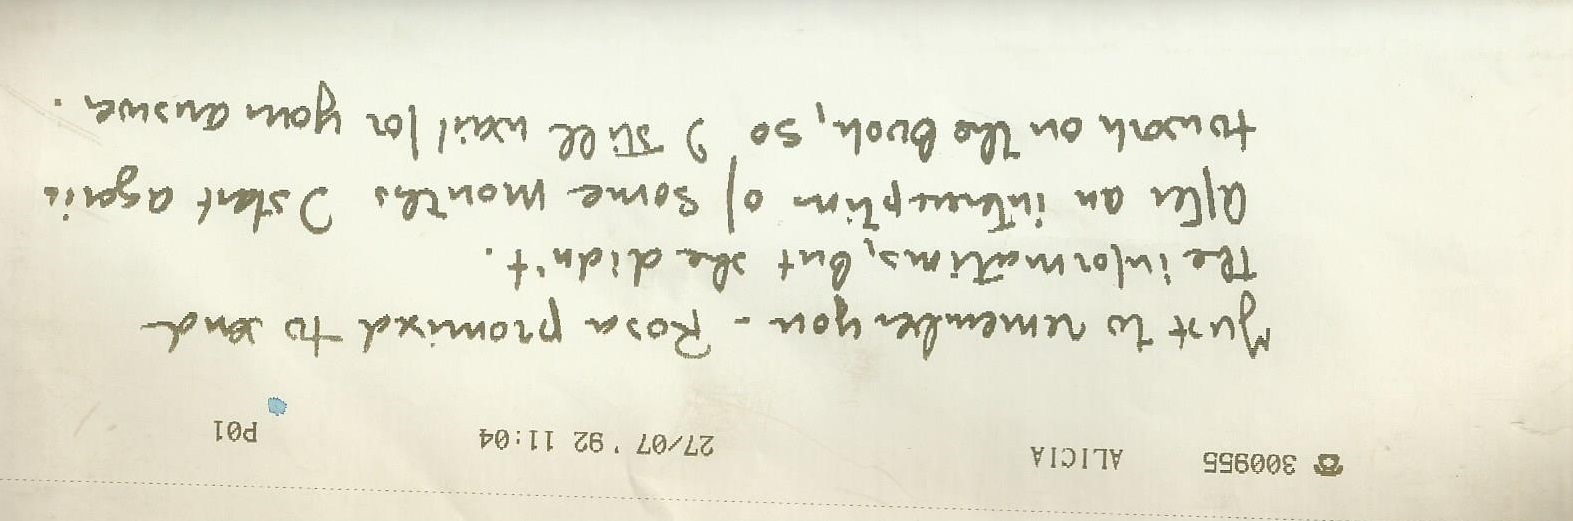 ☎ 300955 ALICIA 27/07 '92 11:04 P01
Just to remember you - Rosa promised to send
the informations, but she didn't.
After an interruption of some months I start again
to work on the book, so I still wait for your answer.